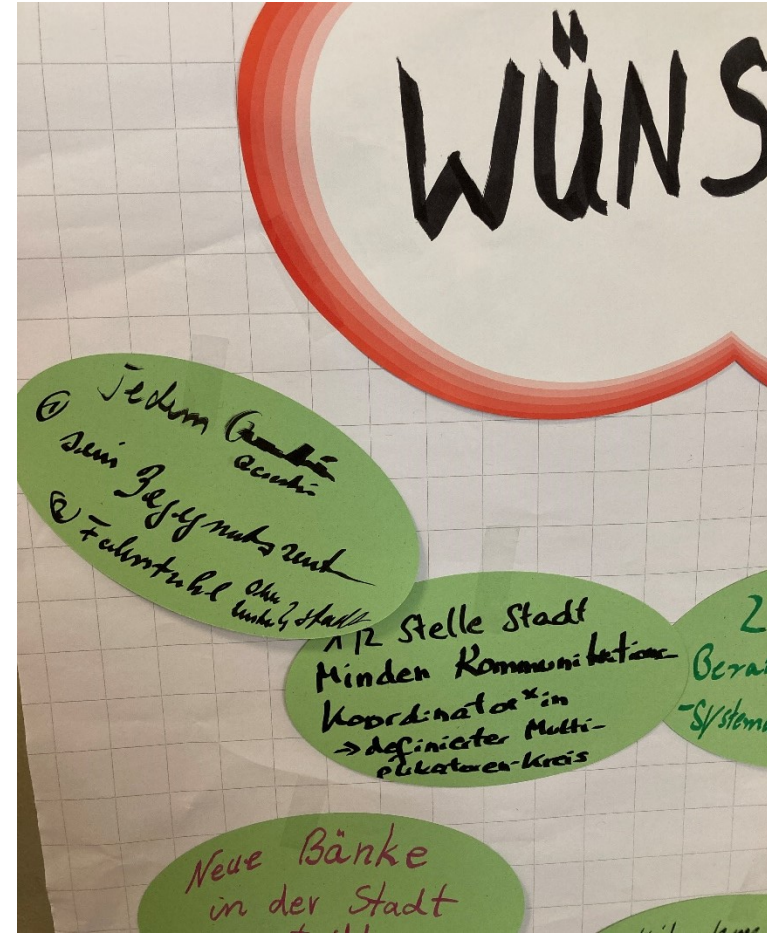 WÜNS
① Jedem
sein Begegnungszent
② Fahrstuhl
stadt
1/2 Stelle Stadt
Minden Kommunikations-
Koordinator*in
→ definierter Multi-
plikatoren-Kreis
2
Bera
-System
Neue Bänke
in der Stadt